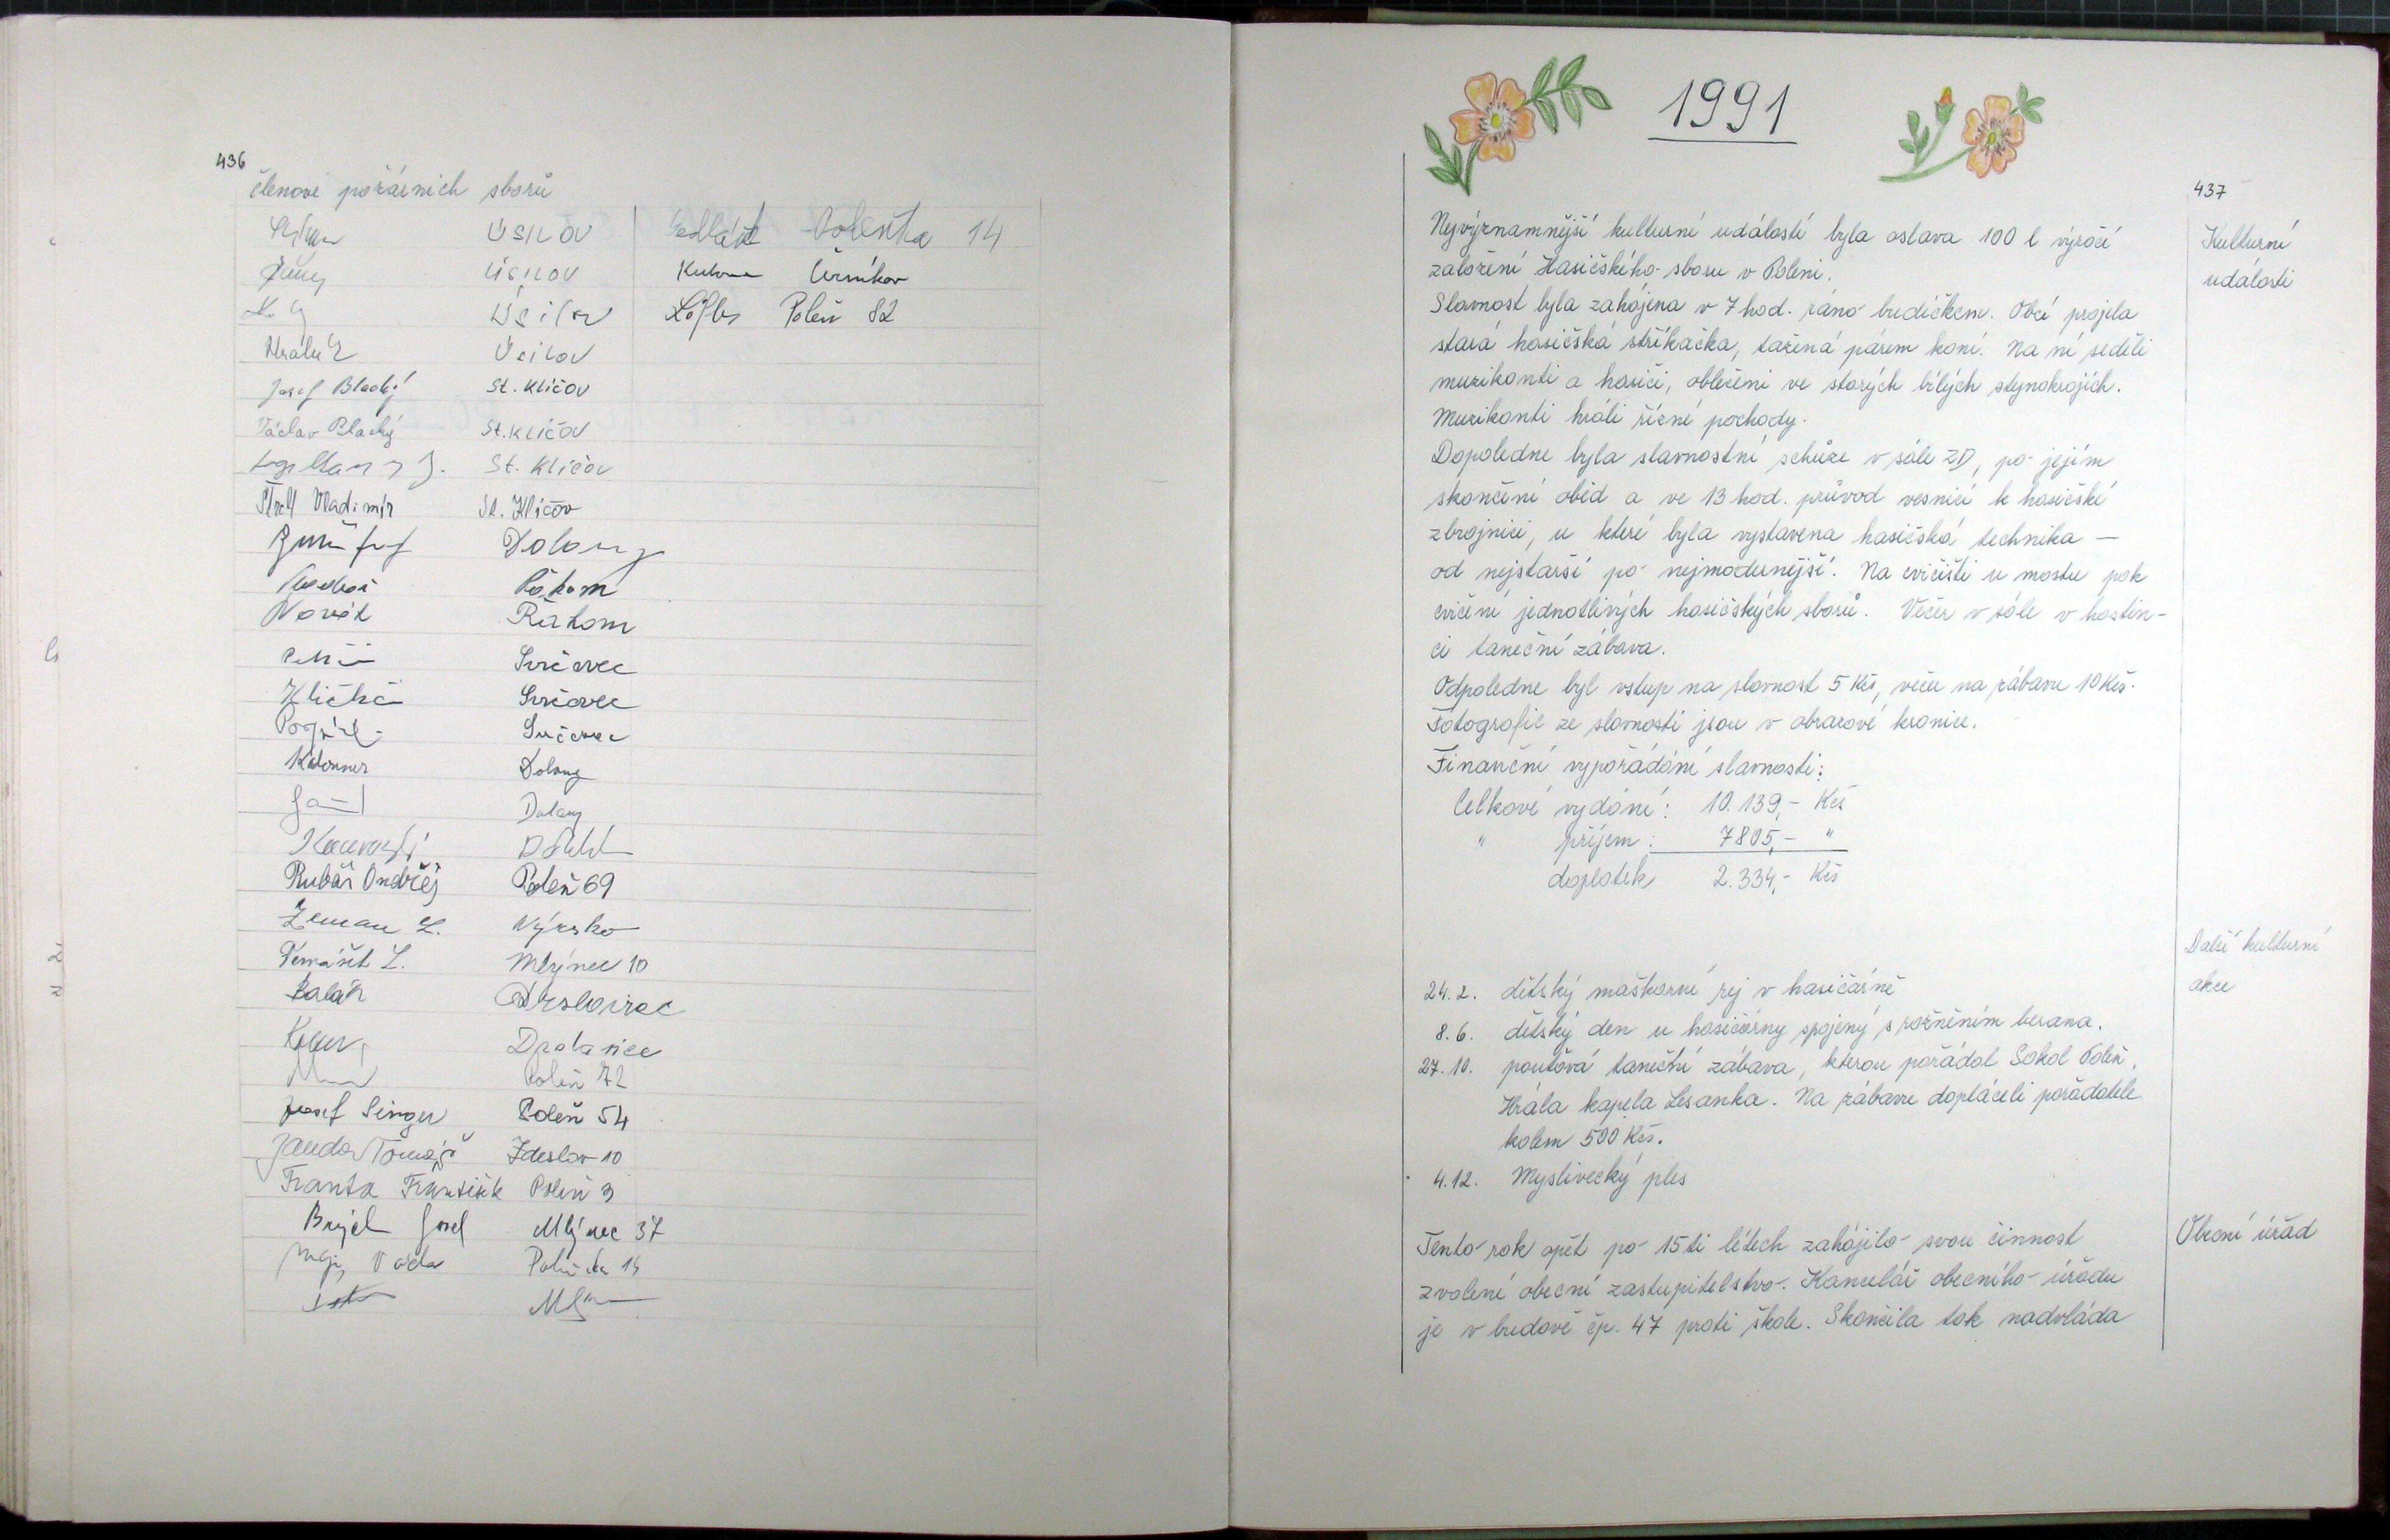 436
členové požárních sborů
Úsilov
Sedláček Polenka 14
Úsilov
Černíkov
Úsilov
Polen 82
Úsilov
Josef Blacký St. Klíčov
Václav Blacký St. Klíčov
St. Klíčov
Vladimír St. Klíčov
Dolany
Novák Řákom
Svrčovec
Svrčovec
Pospíšil Svrčovec
Dolany
Dolany
Rubáš Ondřej Poleň 69
Zeman L. Nýrsko
Tomášek L. Mlýnec 10
Drslavice
Poleň 72
Josef Singer Poleň 54
Janda Tomáš Zdeslav 10
Franta František Poleň 3
Josef Mlýnec 37
1991
437
Kulturní
události
Nejvýznamnější kulturní událostí byla oslava 100 l výročí
založení Hasičského sboru v Poleni.
Slavnost byla zahájena v 7 hod. ráno budíčkem. Obcí projela
stará hasičská stříkačka, tažená párem koní. Na ní seděli
muzikanti a hasiči, oblečeni ve starých bílých stejnokrojích.
Muzikanti hráli řízné pochody.
Dopoledne byla slavnostní schůze v sále ZD, po jejím
skončení oběd a ve 13 hod. průvod vesnicí k hasičské
zbrojnici, u které byla vystavena hasičská technika —
od nejstarší po nejmodernější. Na cvičišti u mostu pak
cvičení jednotlivých hasičských sborů. Večer v sále v hostin-
ci taneční zábava.
Odpoledne byl vstup na slavnost 5 Kčs, večer na zábavu 10 Kčs.
Fotografie ze slavnosti jsou v obrazové kronice.
Finanční vypořádání slavnosti:
Celkové vydání: 10.139,- Kčs
" příjem: 7805,- "
doplatek 2.334,- Kčs
Další kulturní
akce
24.2. dětský maškarní rej v hasičárně
8.6. dětský den u hasičárny spojený s rožněním berana.
27.10. pouťová taneční zábava, kterou pořádal Sokol Poleň.
Hrála kapela Lesanka. Na zábavu dopláceli pořadatelé
kolem 500 Kčs.
4.12. Myslivecký ples
Obecní úřad
Tento rok opět po 15ti létech zahájilo svou činnost
zvolené obecní zastupitelstvo. Kancelář obecního úřadu
je v budově čp. 47 proti škole. Skončila tak nadvláda